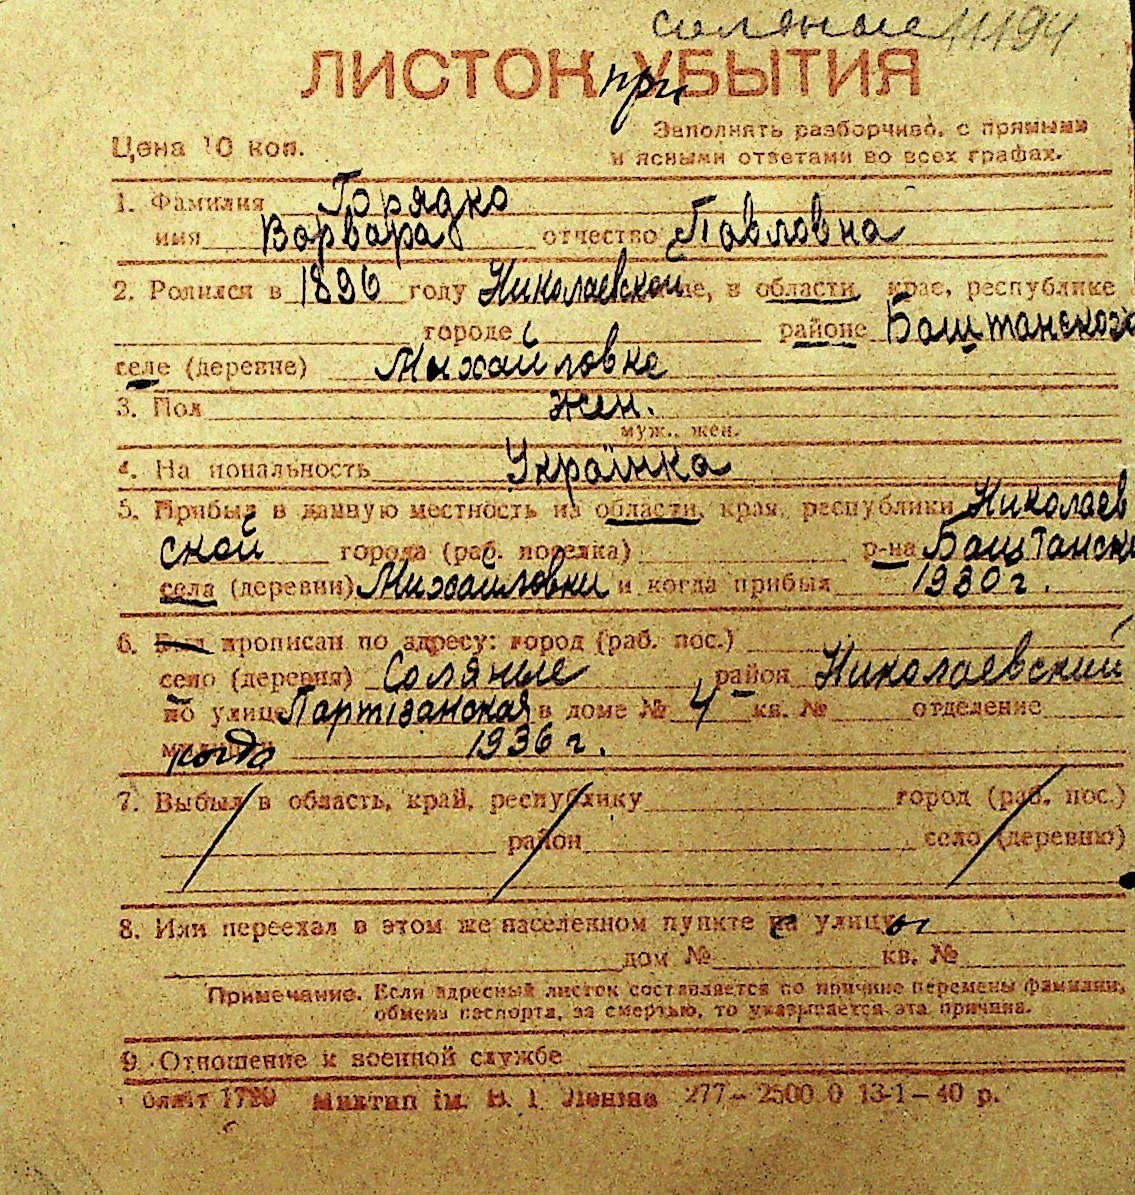 соляные 11194
ЛИСТОК при УБЫТИЯ
Цена 10 коп.
Заполнять разборчиво, с прямыми
и ясными ответами во всех графах.
1. Фамилия Горядко
имя Варвара отчество Павловна
2. Родился в 1896 году Николаевской де, в области, крае, республике
городе районе Баштанского
селе (деревне) Михайловке
3. Пол жен.
муж., жен.
4. На иональность Українка
5. Прибыл в данную местность из области, края, республики Николаев
ской города (раб. поселка) р-на Баштанск
села (деревни) Михайловки и когда прибыл 1930 г.
6. Был прописан по адресу: город (раб. пос.)
село (деревня) Соляные район Николаевский
по улице Партізанская в доме № 4 кв. № отделение
когда 1936 г.
7. Выбыл в область, край, республику город (раб. пос.)
район село (деревню)
8. Или переехал в этом же населенном пункте на улицу
дом № кв. №
Примечание. Если адресный листок составляется по причине перемены фамилии,
обмена паспорта, за смертью, то указывается эта причина.
9. Отношение к военной службе
1720 Миктип ім. В. І. Леніна 277-2500 0 13-1-40 р.